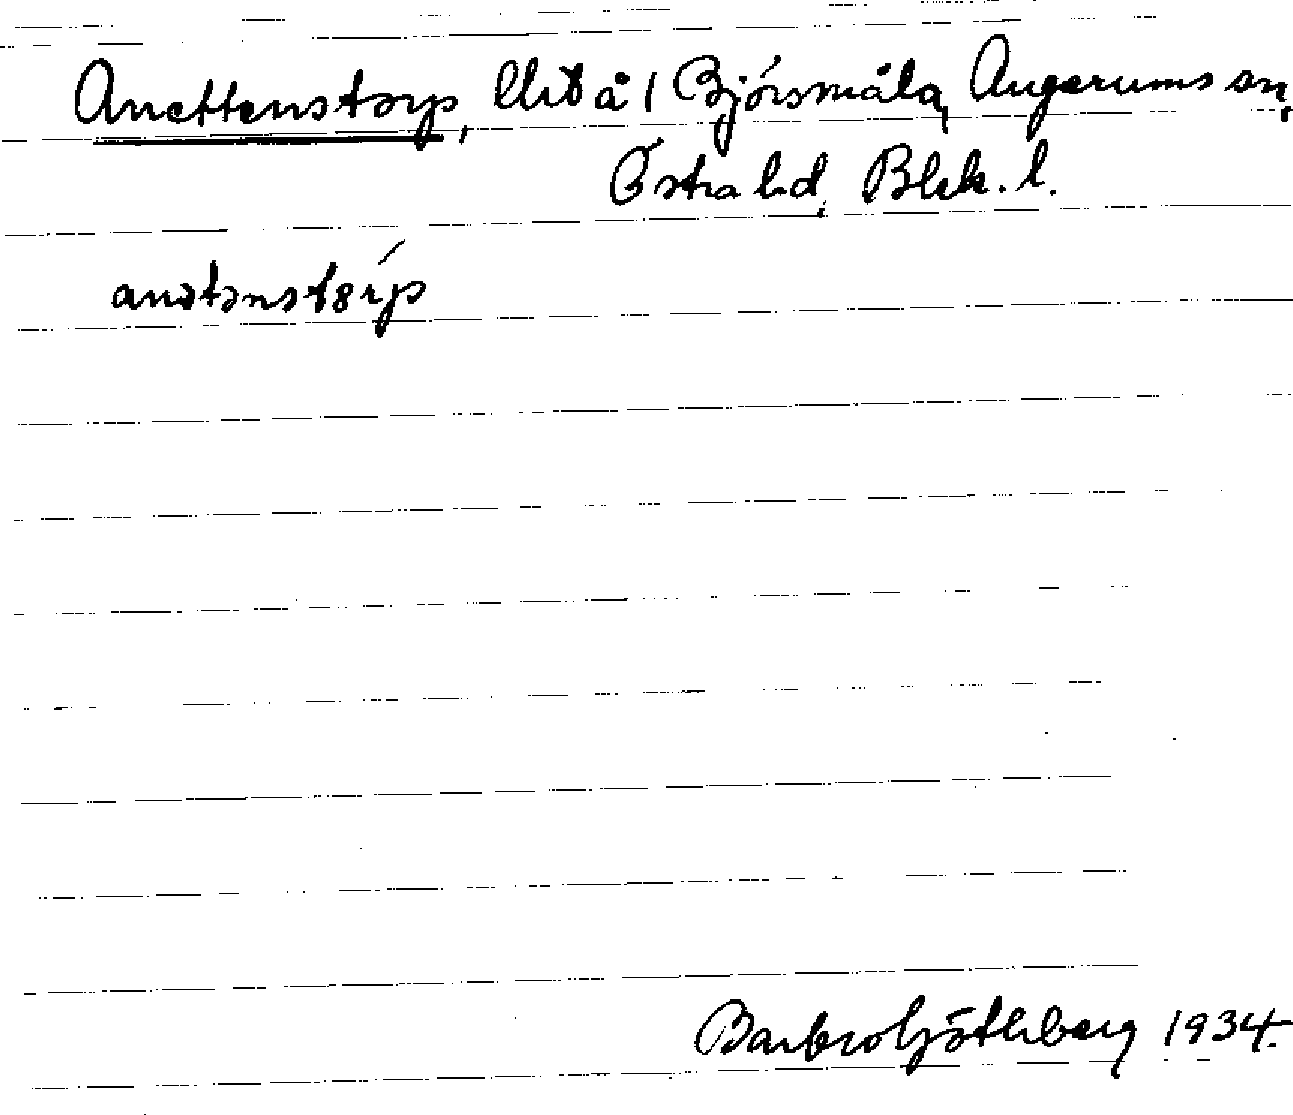 Anettenstorp, lht å 1 Björsmåla, Augerums sn,
Östra hd, Blek. l.
anətənstɔrp
Barbro Göthberg 1934.